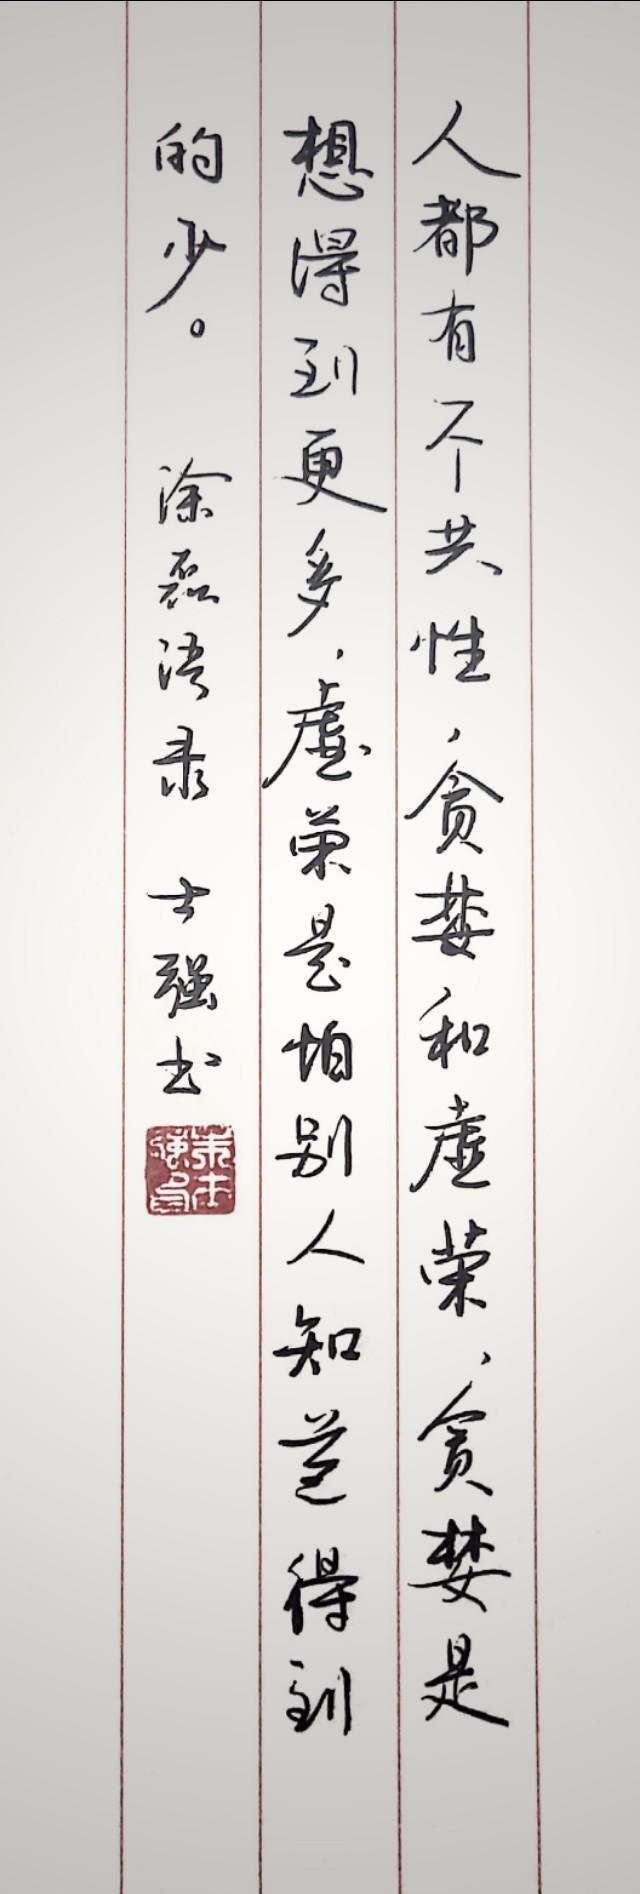 人都有个共性，贪婪和虚荣，贪婪是
想得到更多，虚荣是怕别人知道得到
的少。 涂磊语录 士强书